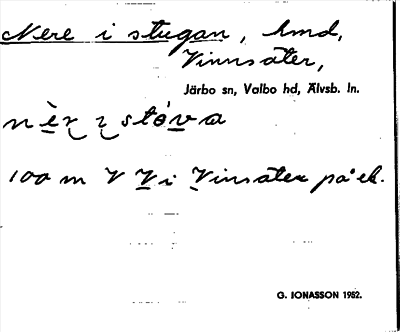 Nere i stugan, hmd,
Vinnsäter,
Järbo sn, Valbo hd, Älvsb. ln.
nèr i stóva
100 m V V i Vinsäter på ek.
G. JONASSON 1952.